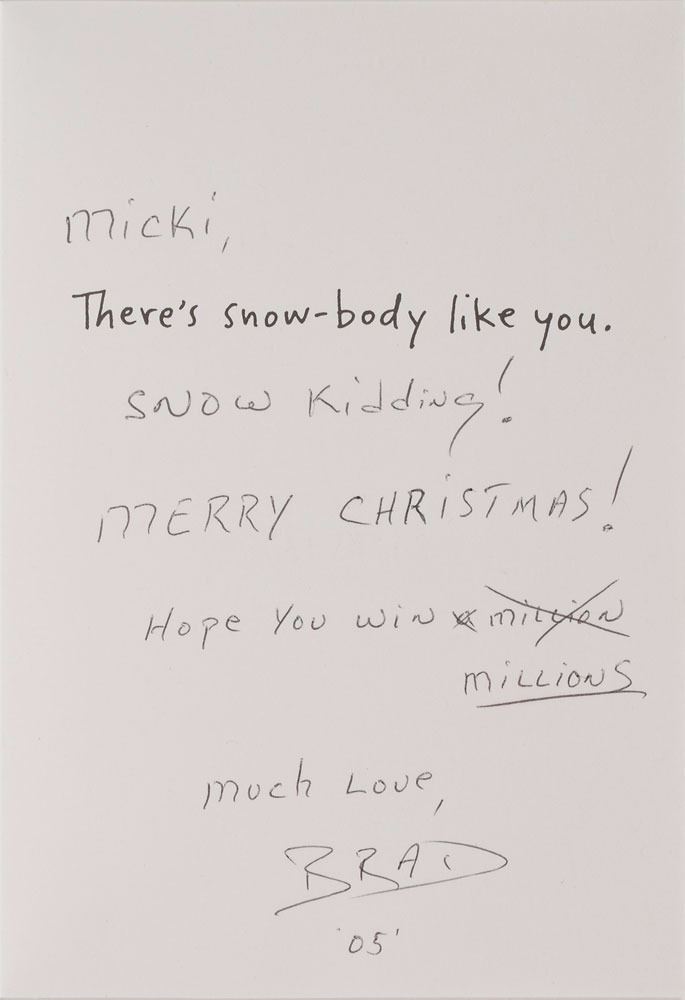 Micki,
There's snow-body like you.
SNOW Kidding!
MERRY CHRISTMAS!
Hope You win a million
MILLIONS
Much Love,
BRAD
'05'